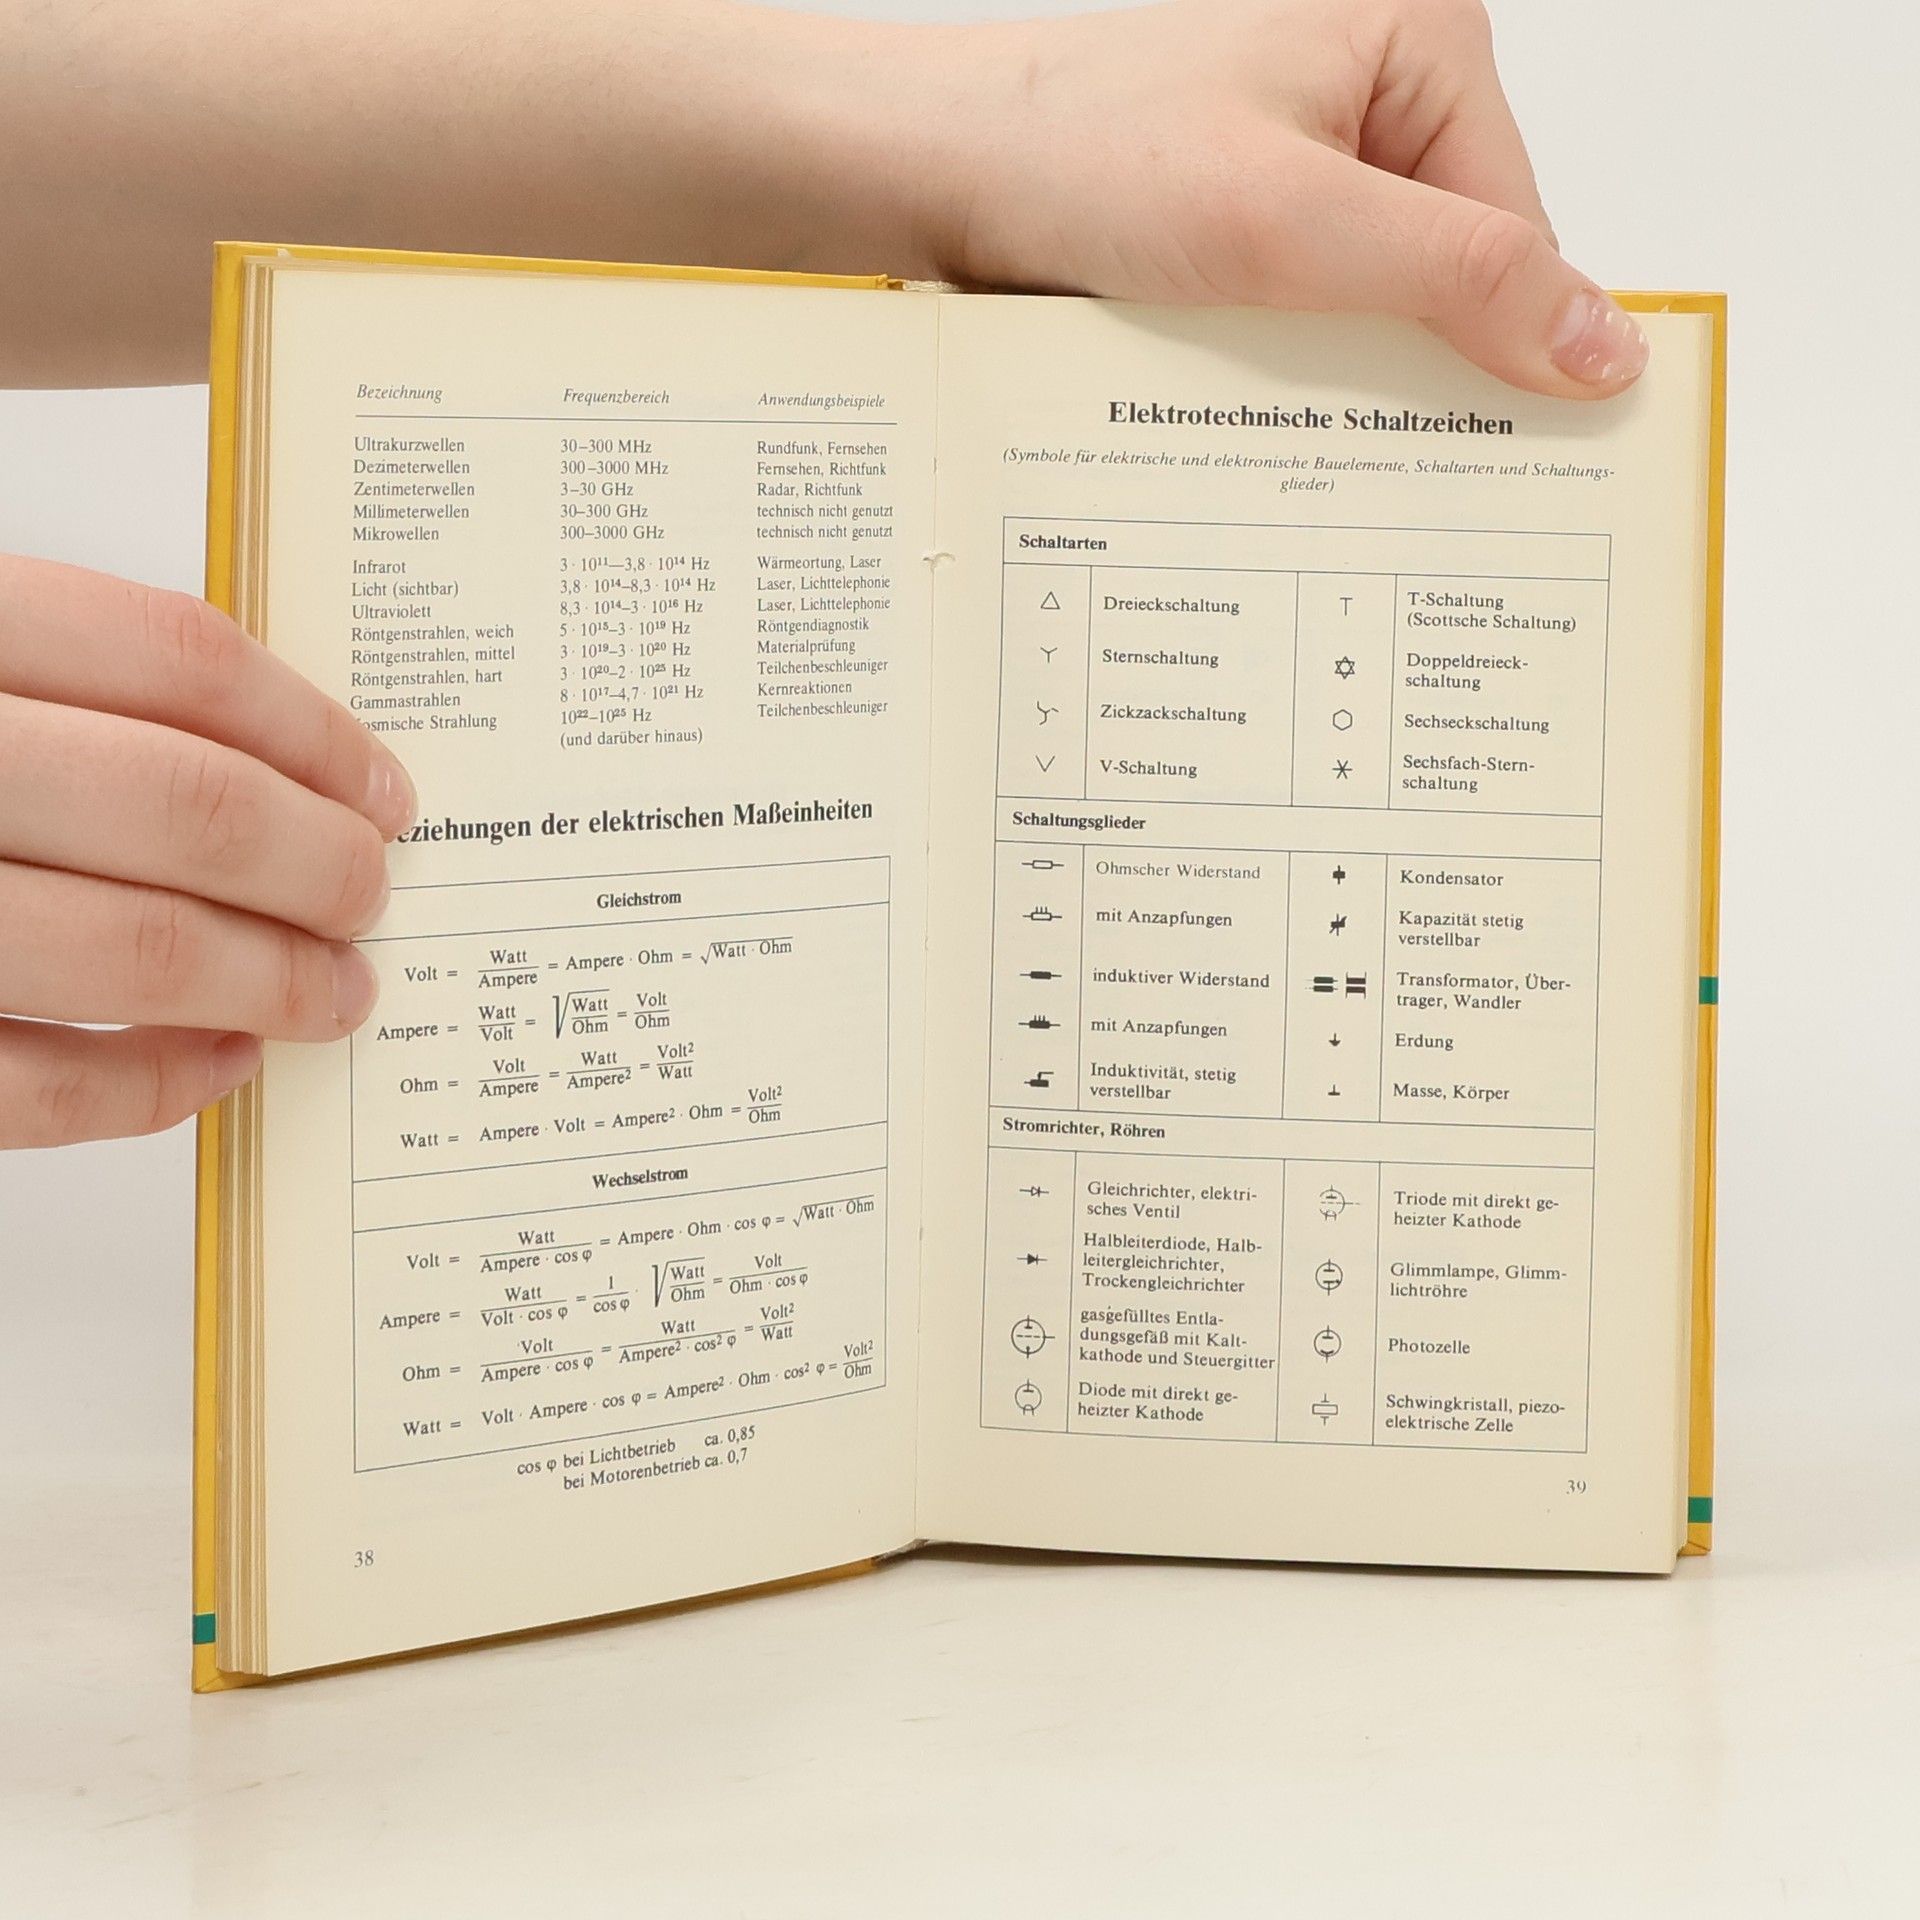 Bezeichnung Frequenzbereich Anwendungsbeispiele
Ultrakurzwellen 30–300 MHz Rundfunk, Fernsehen
Dezimeterwellen 300–3000 MHz Fernsehen, Richtfunk
Zentimeterwellen 3–30 GHz Radar, Richtfunk
Millimeterwellen 30–300 GHz technisch nicht genutzt
Mikrowellen 300–3000 GHz technisch nicht genutzt
Infrarot 3 · 10¹¹—3,8 · 10¹⁴ Hz Wärmeortung, Laser
Licht (sichtbar) 3,8 · 10¹⁴–8,3 · 10¹⁴ Hz Laser, Lichttelephonie
Ultraviolett 8,3 · 10¹⁴–3 · 10¹⁶ Hz Laser, Lichttelephonie
Röntgenstrahlen, weich 5 · 10¹⁵–3 · 10¹⁹ Hz Röntgendiagnostik
Röntgenstrahlen, mittel 3 · 10¹⁹–3 · 10²⁰ Hz Materialprüfung
Röntgenstrahlen, hart 3 · 10²⁰–2 · 10²⁵ Hz Teilchenbeschleuniger
Gammastrahlen 8 · 10¹⁷–4,7 · 10²¹ Hz Kernreaktionen
osmische Strahlung 10²²–10²⁵ Hz Teilchenbeschleuniger
(und darüber hinaus)
eziehungen der elektrischen Maßeinheiten
Gleichstrom
Volt = Watt/Ampere = Ampere · Ohm = √Watt · Ohm
Ampere = Watt/Volt = √Watt/Ohm = Volt/Ohm
Ohm = Volt/Ampere = Watt/Ampere² = Volt²/Watt
Watt = Ampere · Volt = Ampere² · Ohm = Volt²/Ohm
Wechselstrom
Volt = Watt/Ampere · cos φ = Ampere · Ohm · cos φ = √Watt · Ohm
Ampere = Watt/Volt · cos φ = 1/cos φ · √Watt/Ohm = Volt/Ohm · cos φ
Ohm = Volt/Ampere · cos φ = Watt/Ampere² · cos² φ = Volt²/Watt
Watt = Volt · Ampere · cos φ = Ampere² · Ohm · cos² φ = Volt²/Ohm
cos φ bei Lichtbetrieb ca. 0,85
bei Motorenbetrieb ca. 0,7
38
Elektrotechnische Schaltzeichen
(Symbole für elektrische und elektronische Bauelemente, Schaltarten und Schaltungs-
glieder)
Schaltarten
Dreieckschaltung
Sternschaltung
Zickzackschaltung
V-Schaltung
T-Schaltung
(Scottsche Schaltung)
Doppeldreieck-
schaltung
Sechseckschaltung
Sechsfach-Stern-
schaltung
Schaltungsglieder
Ohmscher Widerstand
mit Anzapfungen
induktiver Widerstand
mit Anzapfungen
Induktivität, stetig
verstellbar
Kondensator
Kapazität stetig
verstellbar
Transformator, Über-
trager, Wandler
Erdung
Masse, Körper
Stromrichter, Röhren
Gleichrichter, elektri-
sches Ventil
Halbleiterdiode, Halb-
leitergleichrichter,
Trockengleichrichter
gasgefülltes Entla-
dungsgefäß mit Kalt-
kathode und Steuergitter
Diode mit direkt ge-
heizter Kathode
Triode mit direkt ge-
heizter Kathode
Glimmlampe, Glimm-
lichtröhre
Photozelle
Schwingkristall, piezo-
elektrische Zelle
39